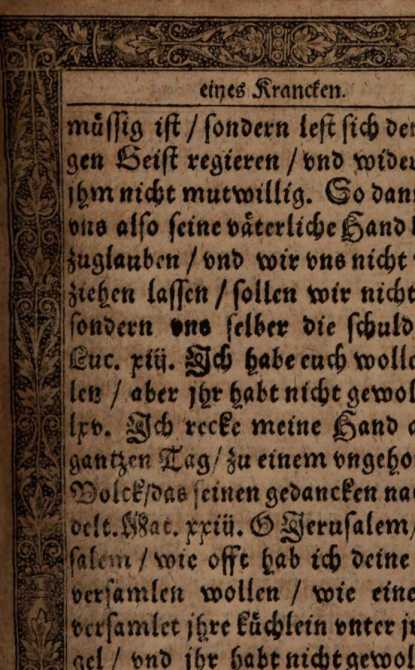 eines Krancken.
müssig ist / sondern lest sich de
gen Geist regieren / vnd wide
jhm nicht mutwillig. So dan
vns also seine väterliche Hand
zuglauben / vnd wir vns nicht
ziehen lassen / sollen wir nicht
sondern vns selber die schuld
Luc. xiij. Ich habe euch wolle
len / aber jhr habt nicht gewol
lxv. Ich recke meine Hand
gantzen Tag / zu einem vngeho
Volck / das seinen gedancken na
delt. Mat. xxiij. O Jerusalem /
salem / wie offt hab ich deine
versamlen wollen / wie eine
versamlet jhre küchlein vnter j
gel / vnd jhr habt nicht gewol